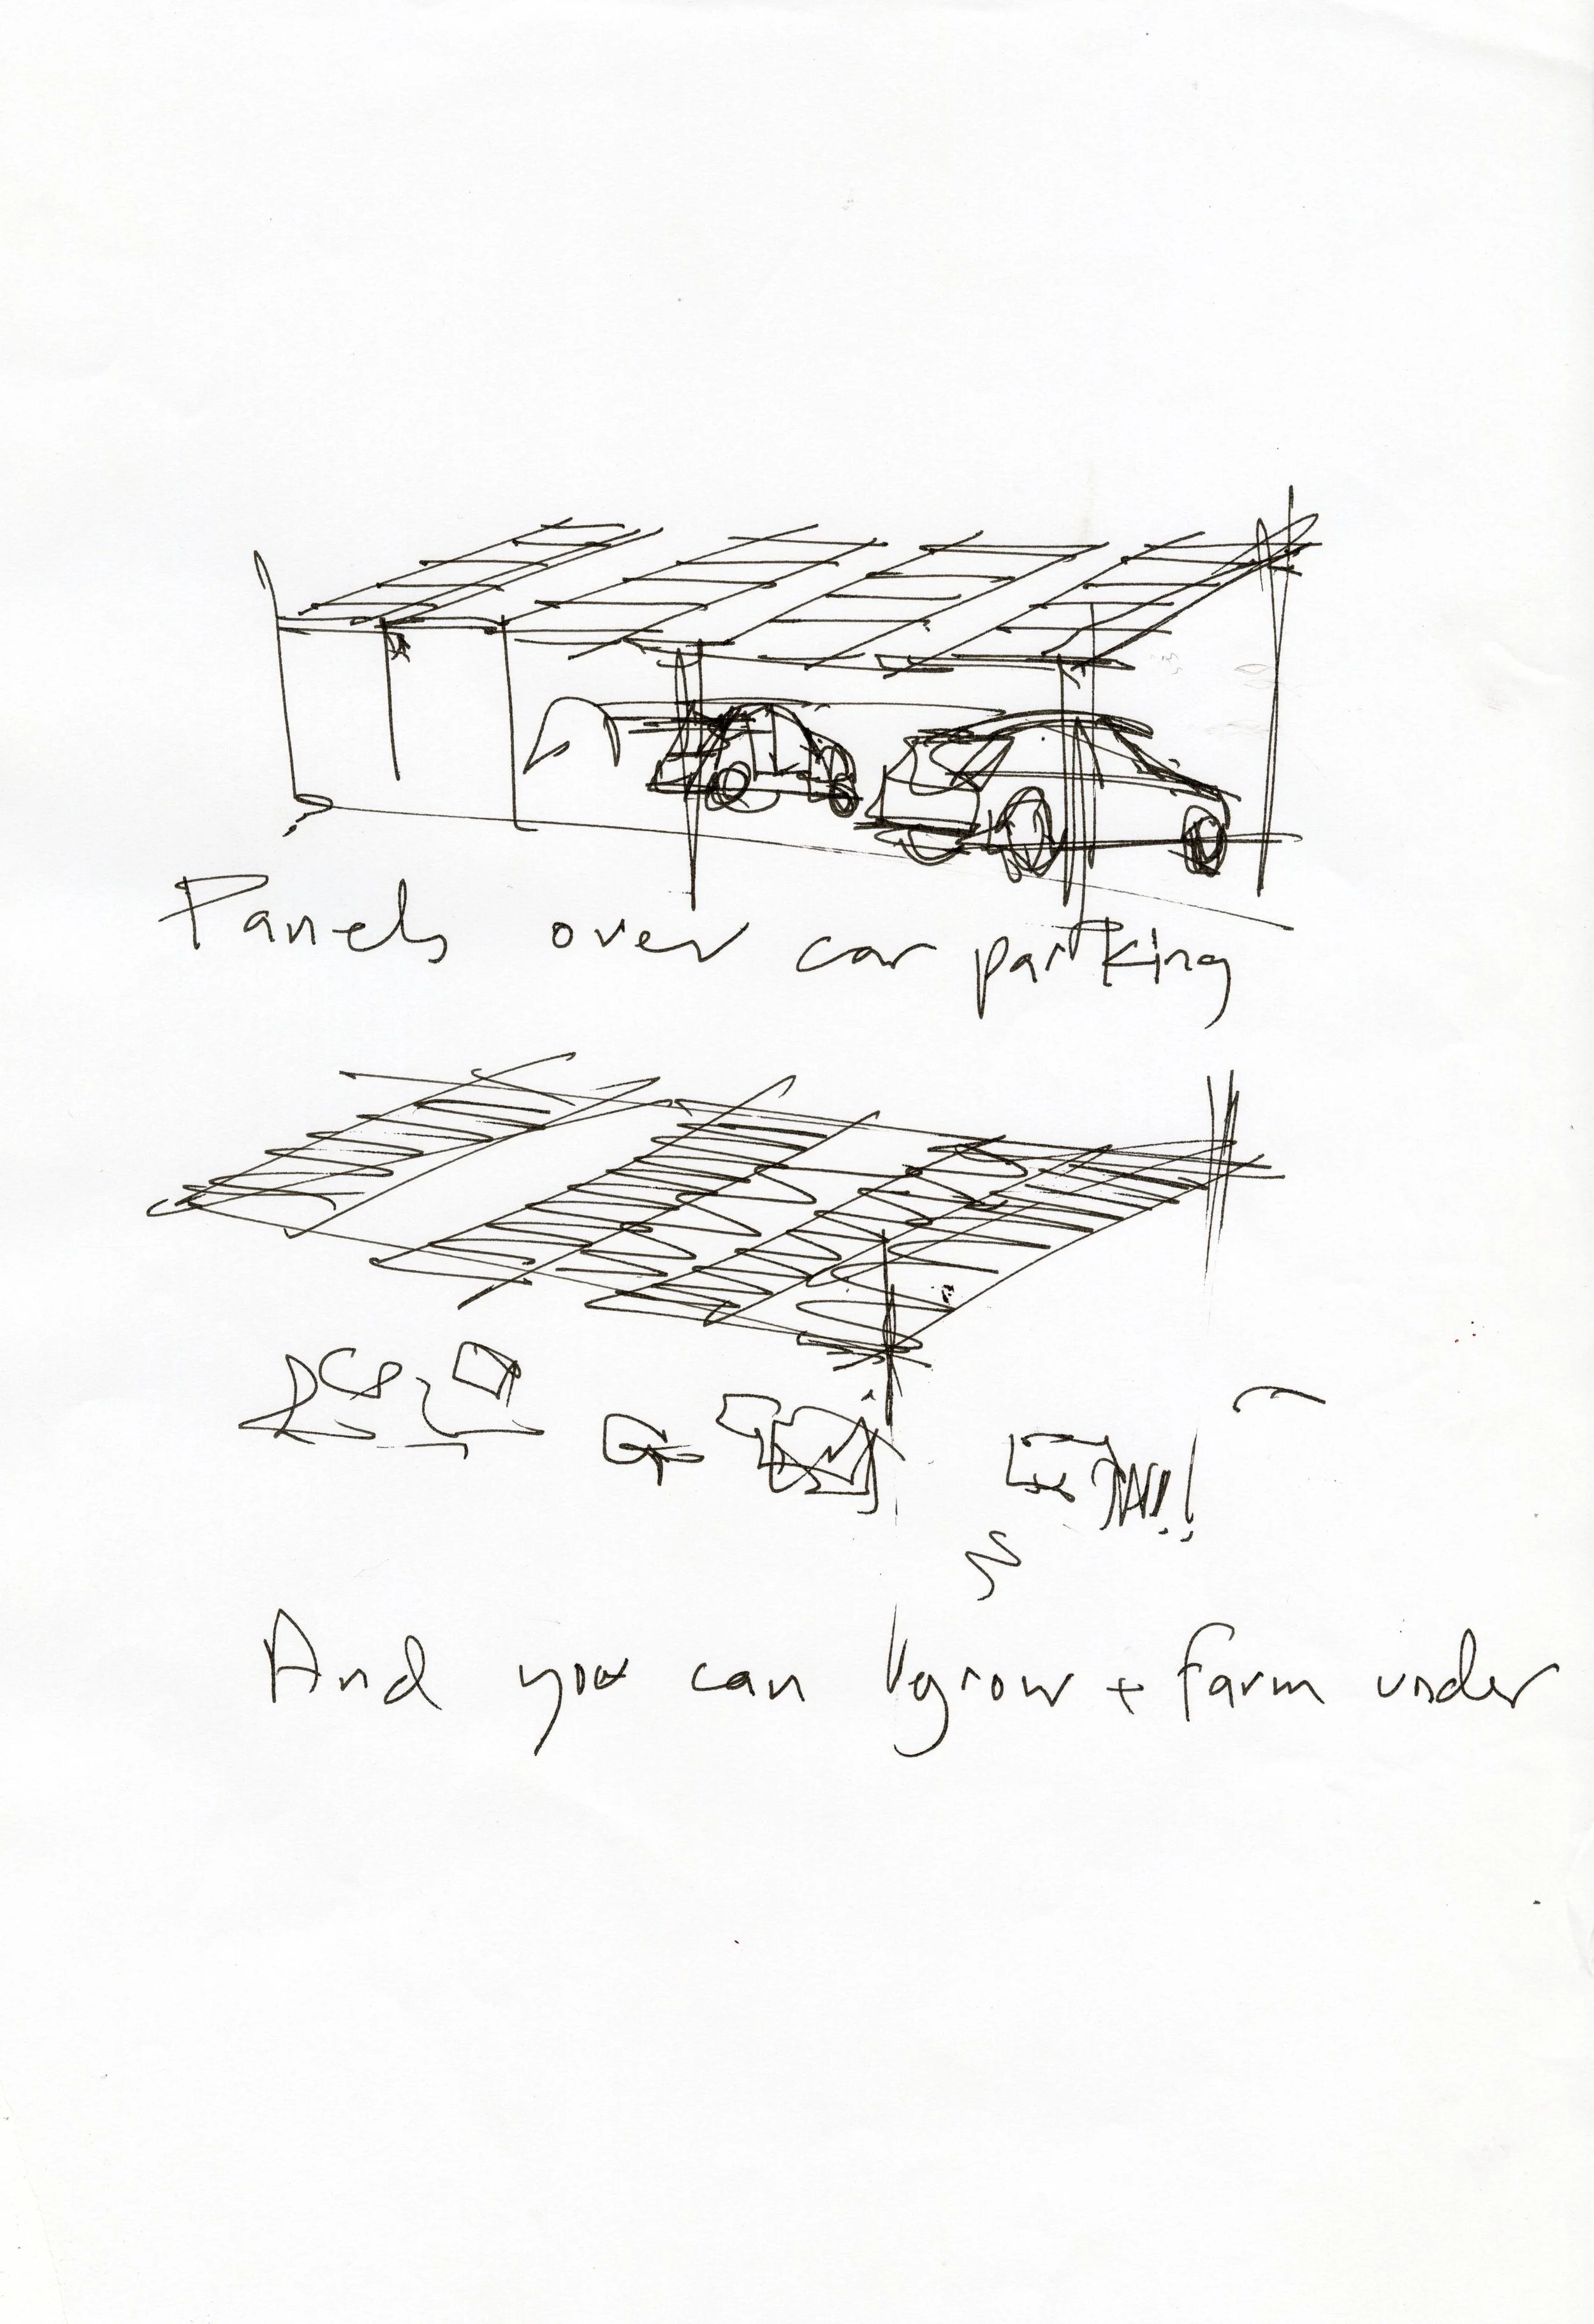 Panels over car parking
And you can grow + farm under